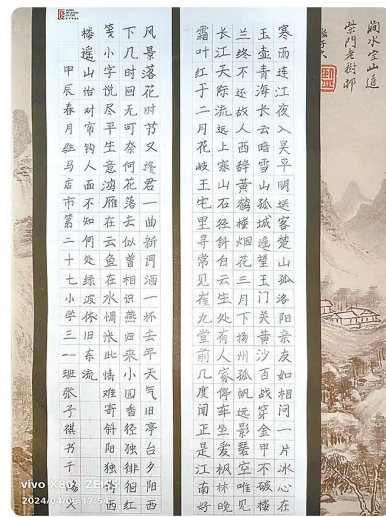 寒雨连江夜入吴平明送客楚山孤洛阳亲友如相问一片冰心在
玉壶青海长云暗雪山孤城遥望玉门关黄沙百战穿金甲不破楼
兰终不还故人西辞黄鹤楼烟花三月下扬州孤帆远影碧空尽唯见
长江天际流远上寒山石径斜白云生处有人家停车坐爱枫林晚
霜叶红于二月花岐王宅里寻常见崔九堂前几度闻正是江南好
风景落花时节又逢君一曲新词酒一杯去年天气旧亭台夕阳西
下几时回无可奈何花落去似曾相识燕归来小园香径独徘徊红
笺小字说尽平生意鸿雁在云鱼在水惆怅此情难寄斜阳独倚西
楼遥山恰对帘钩人面不知何处绿波依旧东流
甲辰春月驻马店市第二十七小学三一班张子祺书于
vivo X80 ZEISS
2024/04/06 17:54